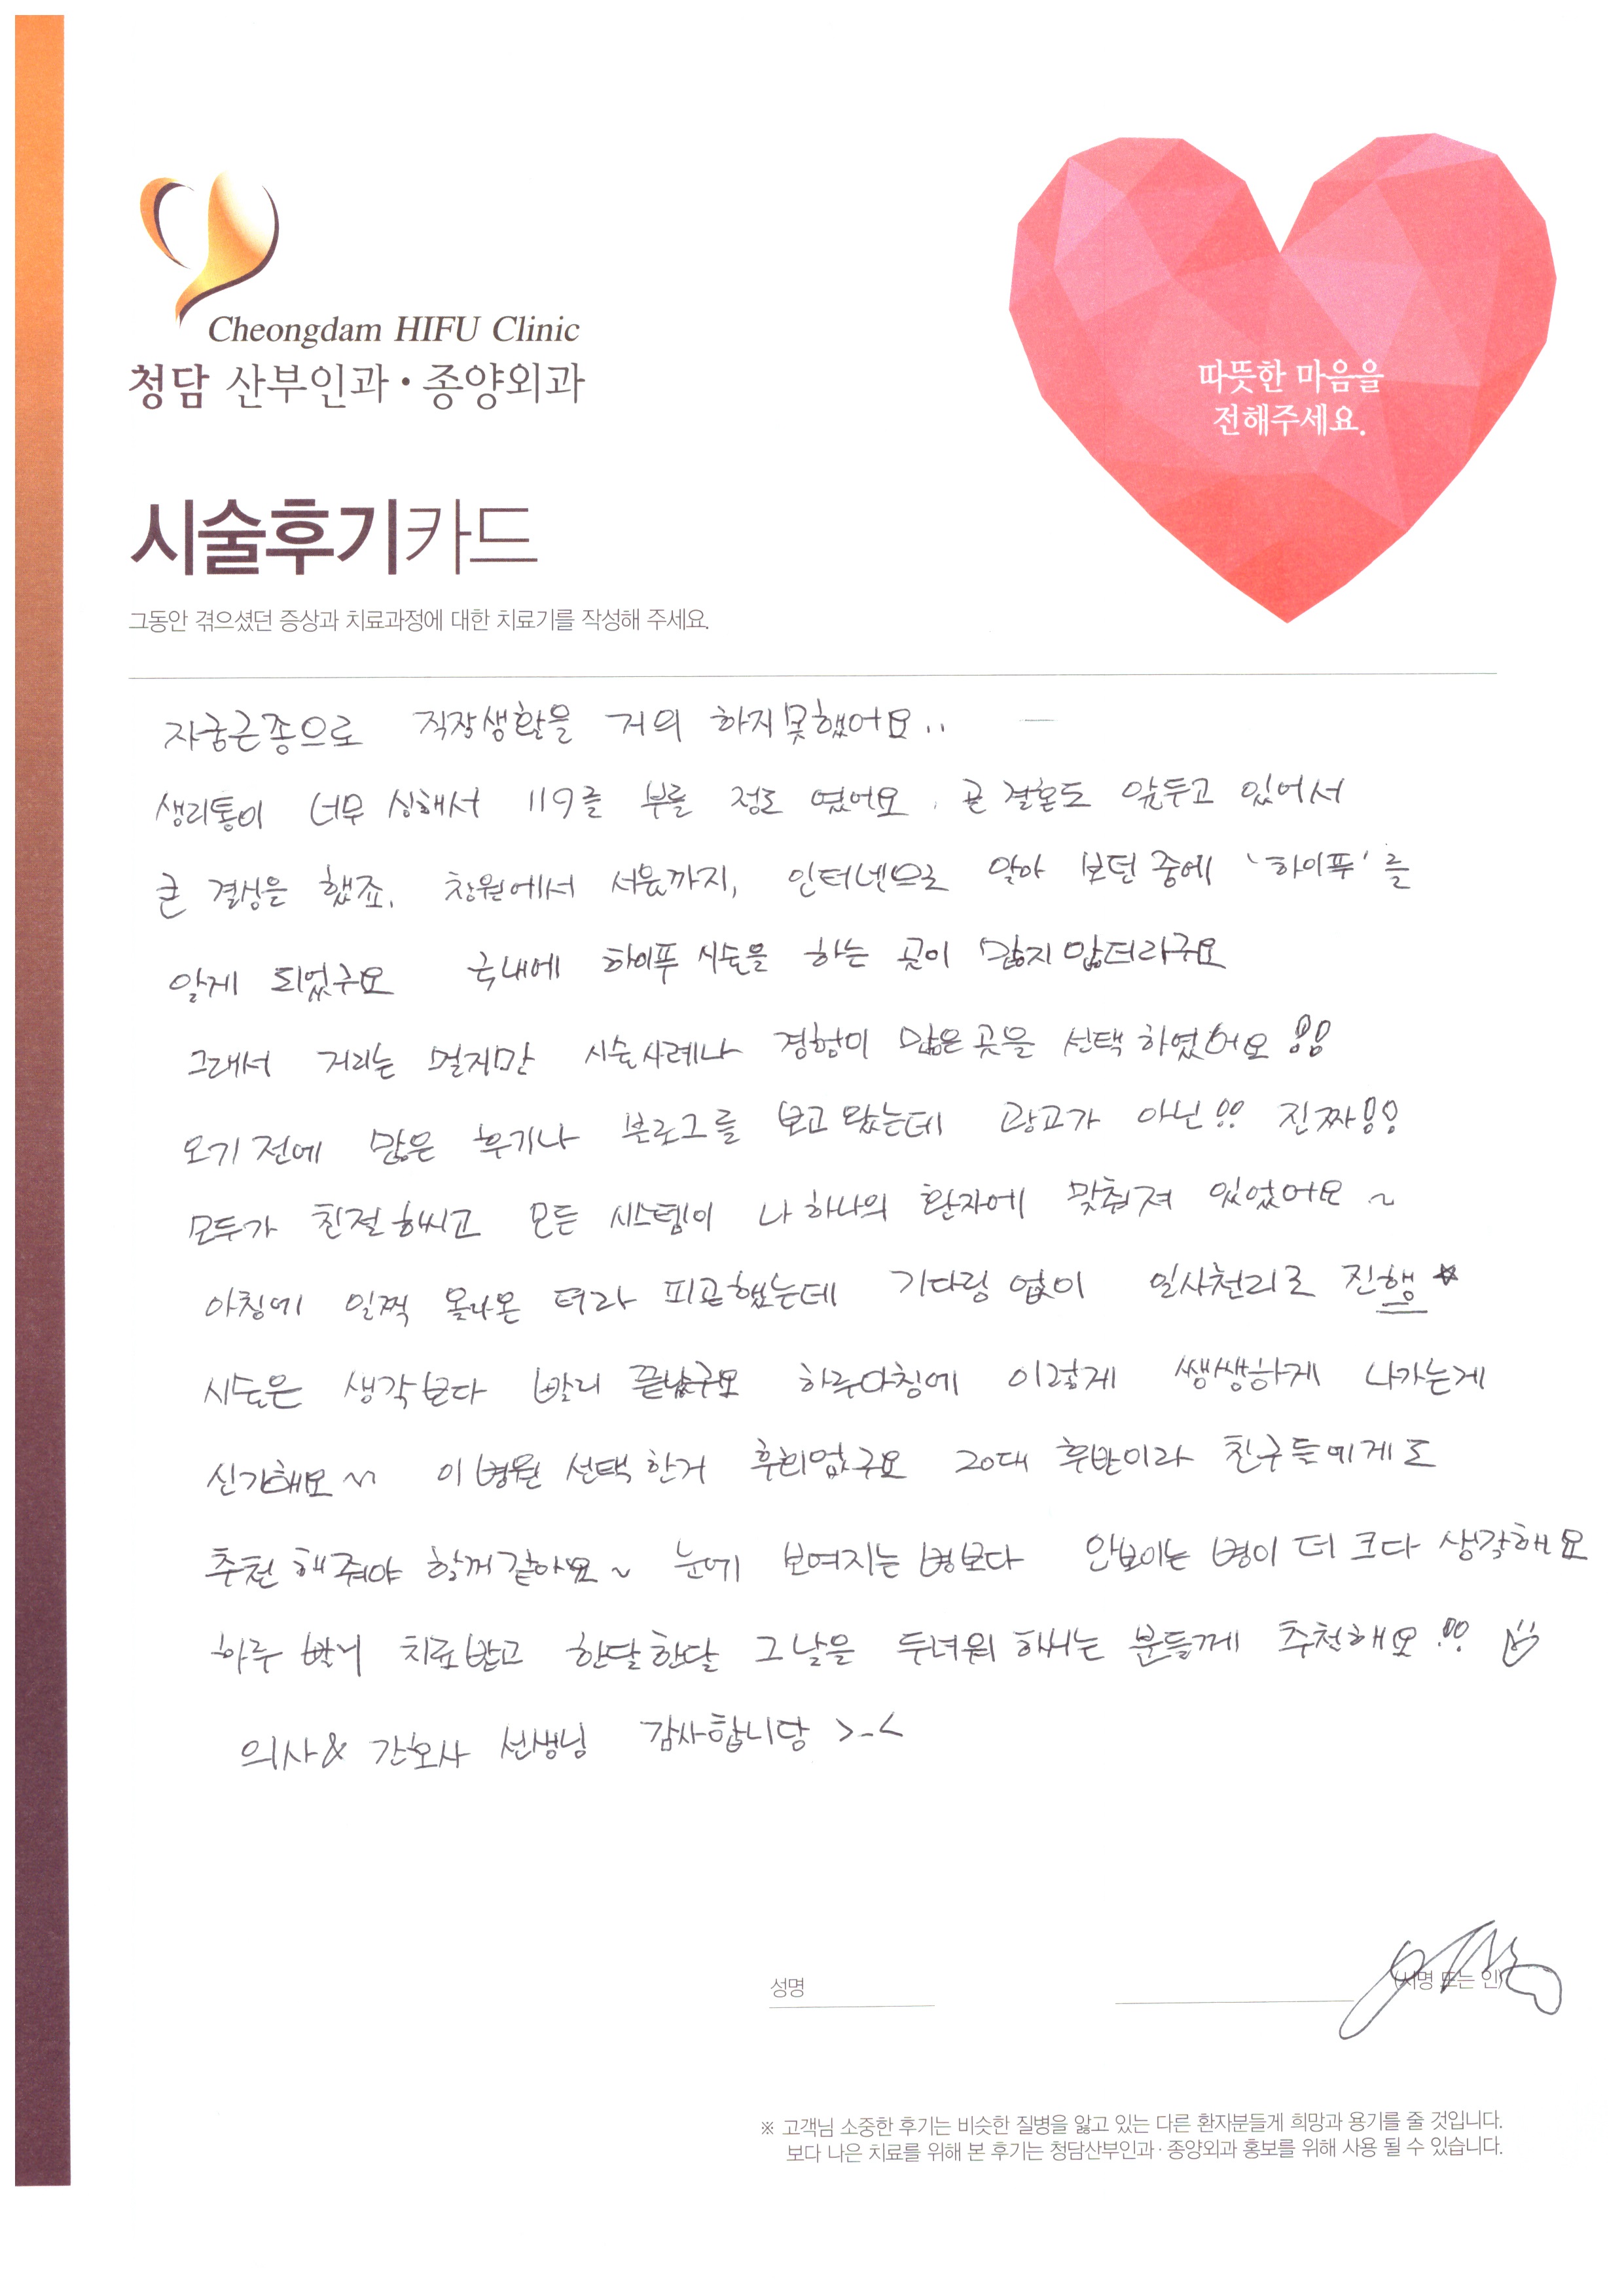 Cheongdam HIFU Clinic
청담 산부인과·종양외과
따뜻한 마음을
전해주세요.
시술후기카드
그동안 겪으셨던 증상과 치료과정에 대한 치료기를 작성해 주세요.
자궁근종으로 직장생활을 거의 하지못했어요..
생리통이 너무 심해서 119를 부를 정도 였어요. 곧 결혼도 앞두고 있어서
큰 결심을 했죠. 창원에서 서울까지, 인터넷으로 알아 보던 중에 '하이푸'를
알게 되었구요 국내에 하이푸 시술을 하는 곳이 많지 않더라구요
그래서 거리는 멀지만 시술사례나 경험이 많은 곳을 선택 하였어요!!
오기 전에 많은 후기나 블로그를 보고 왔는데 광고가 아닌!! 진짜!!
모두가 친절하시고 모든 시스템이 나 하나의 환자에 맞춰져 있었어요~
아침에 일찍 올라온 터라 피곤했는데 기다림 없이 일사천리로 진행☆
시술은 생각보다 빨리 끝났구요 하루아침에 이렇게 쌩쌩하게 나가는게
신기해요~ 이 병원 선택 한거 후회없구요 20대 후반이라 친구들에게도
추천 해줘야 할꺼 같아요~ 눈에 보여지는 병보다 안보이는 병이 더 크다 생각해요
하루 빨리 치료받고 한달한달 그 날을 두려워 하시는 분들께 추천해요!!
의사& 간호사 선생님 감사합니당 >_<
성명 (서명 또는 인)
※ 고객님 소중한 후기는 비슷한 질병을 앓고 있는 다른 환자분들게 희망과 용기를 줄 것입니다.
보다 나은 치료를 위해 본 후기는 청담산부인과·종양외과 홍보를 위해 사용 될 수 있습니다.